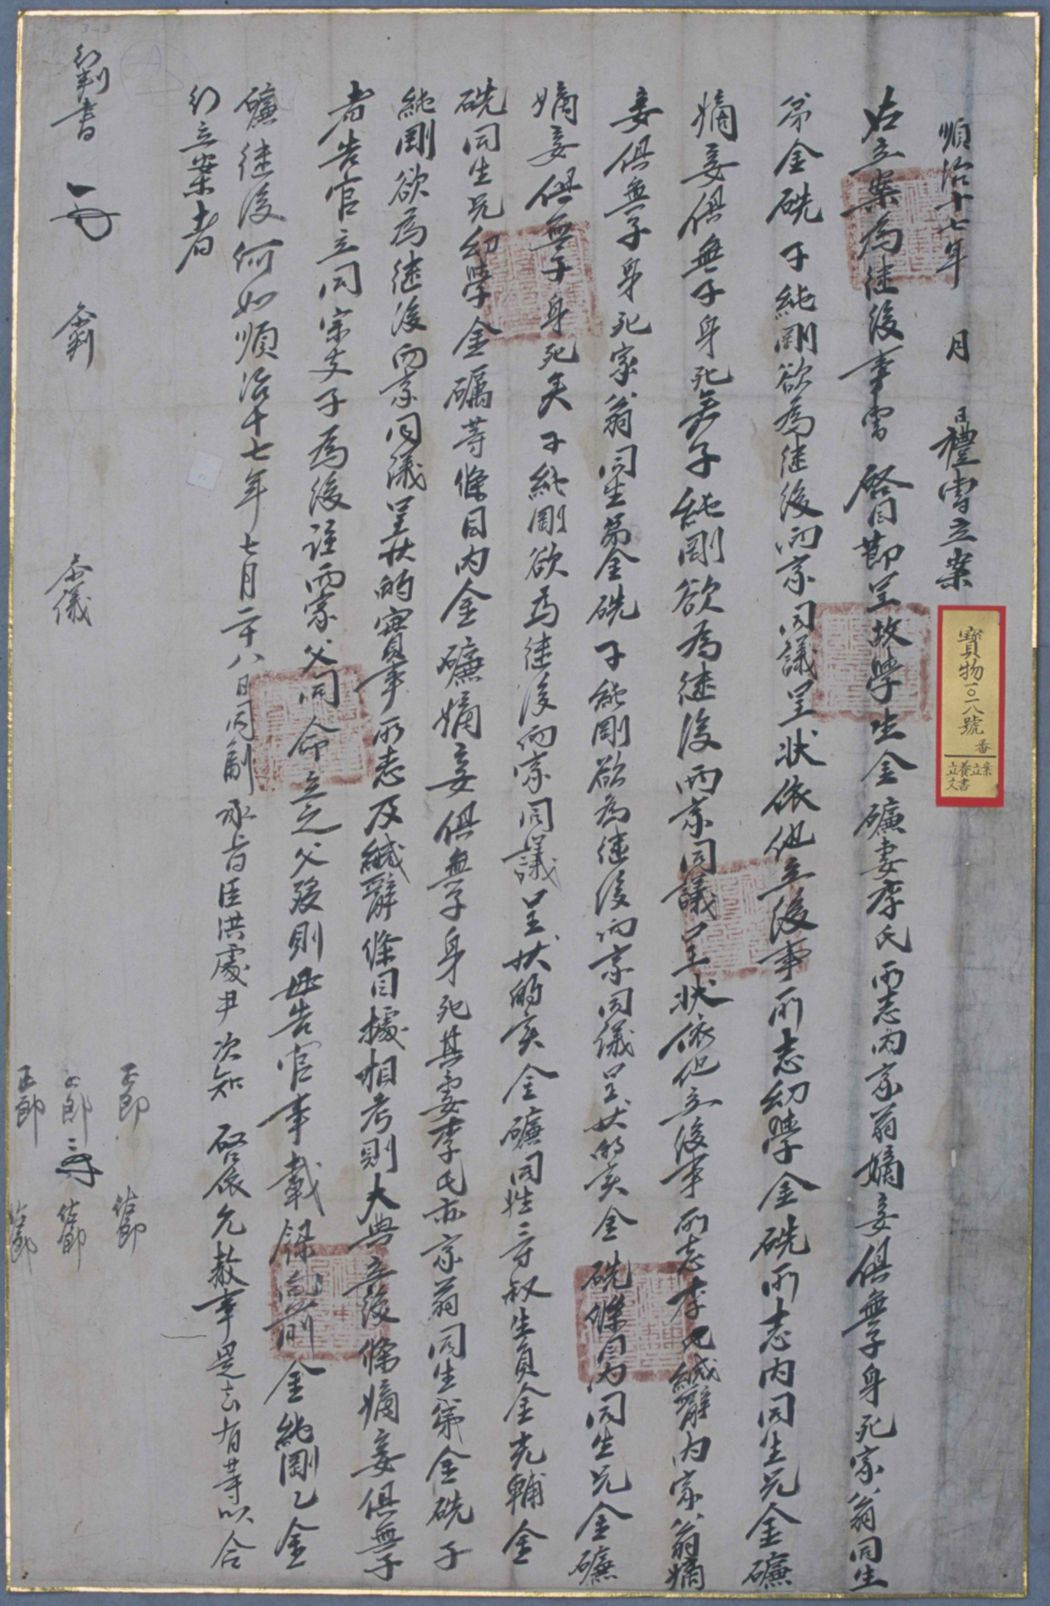 順治十七年 月 日禮曹立案
右立案爲継後事曹 啓目節呈故學生金礦妻李氏所志內家翁嫡妾俱無子身死家翁同生
弟金硄子純剛欲爲継後兩家同議呈狀依他立後事所志幼學金硄所志內同生兄金礦
嫡妾俱無子身死矣子純剛欲爲継後兩家同議呈狀依他立後事所志李氏緘辭內家翁嫡
妾俱無子身死家翁同生弟金硄子純剛欲爲継後兩家同議呈狀的實金硄條目內同生兄金礦
嫡妾俱無子身死矣子純剛欲爲継後兩家同議呈狀的實金礦同姓三寸叔生員金克輔金
硄同生兄幼學金礪等條目內金礦嫡妾俱無子身死其妻李氏亦家翁同生弟金硄子
純剛欲爲継後兩家同議呈狀的實事所志及緘辭條目據相考則大典立後條嫡妾俱無子
者告官立同宗支子爲後註兩家父同命立之父歿則母告官事載錄向前金純剛乙金
礦継後何如順治十七年七月二十八日同副承旨臣洪處尹次知 啓依允敎事是去有等以合
行立案者
行判書 參判 參議
正郎 正郎 正郎
佐郎 佐郎 佐郎
寶物一〇一八號
番
立養立案
文書